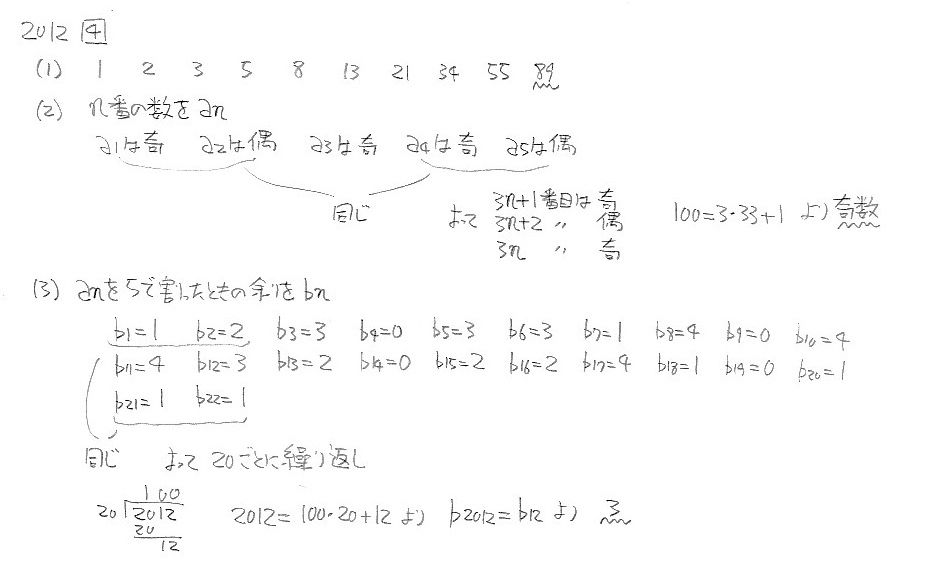 2012 4
(1) 1 2 3 5 8 13 21 34 55 89
(2) n番の数をan
a1は奇 a2は偶 a3は奇 a4は奇 a5は偶
同じ よって 3n+1番目は奇 100=3・33+1 より奇数
3n+2 〃 偶
3n 〃 奇
(3) anを5で割ったときの余りをbn
b1=1 b2=2 b3=3 b4=0 b5=3 b6=3 b7=1 b8=4 b9=0 b10=4
b11=4 b12=3 b13=2 b14=0 b15=2 b16=2 b17=4 b18=1 b19=0 b20=1
b21=1 b22=1
同じ よって 20ごとに繰り返し
100
20 2012 2012=100・20+12 より b2012=b12 より 3
20
12